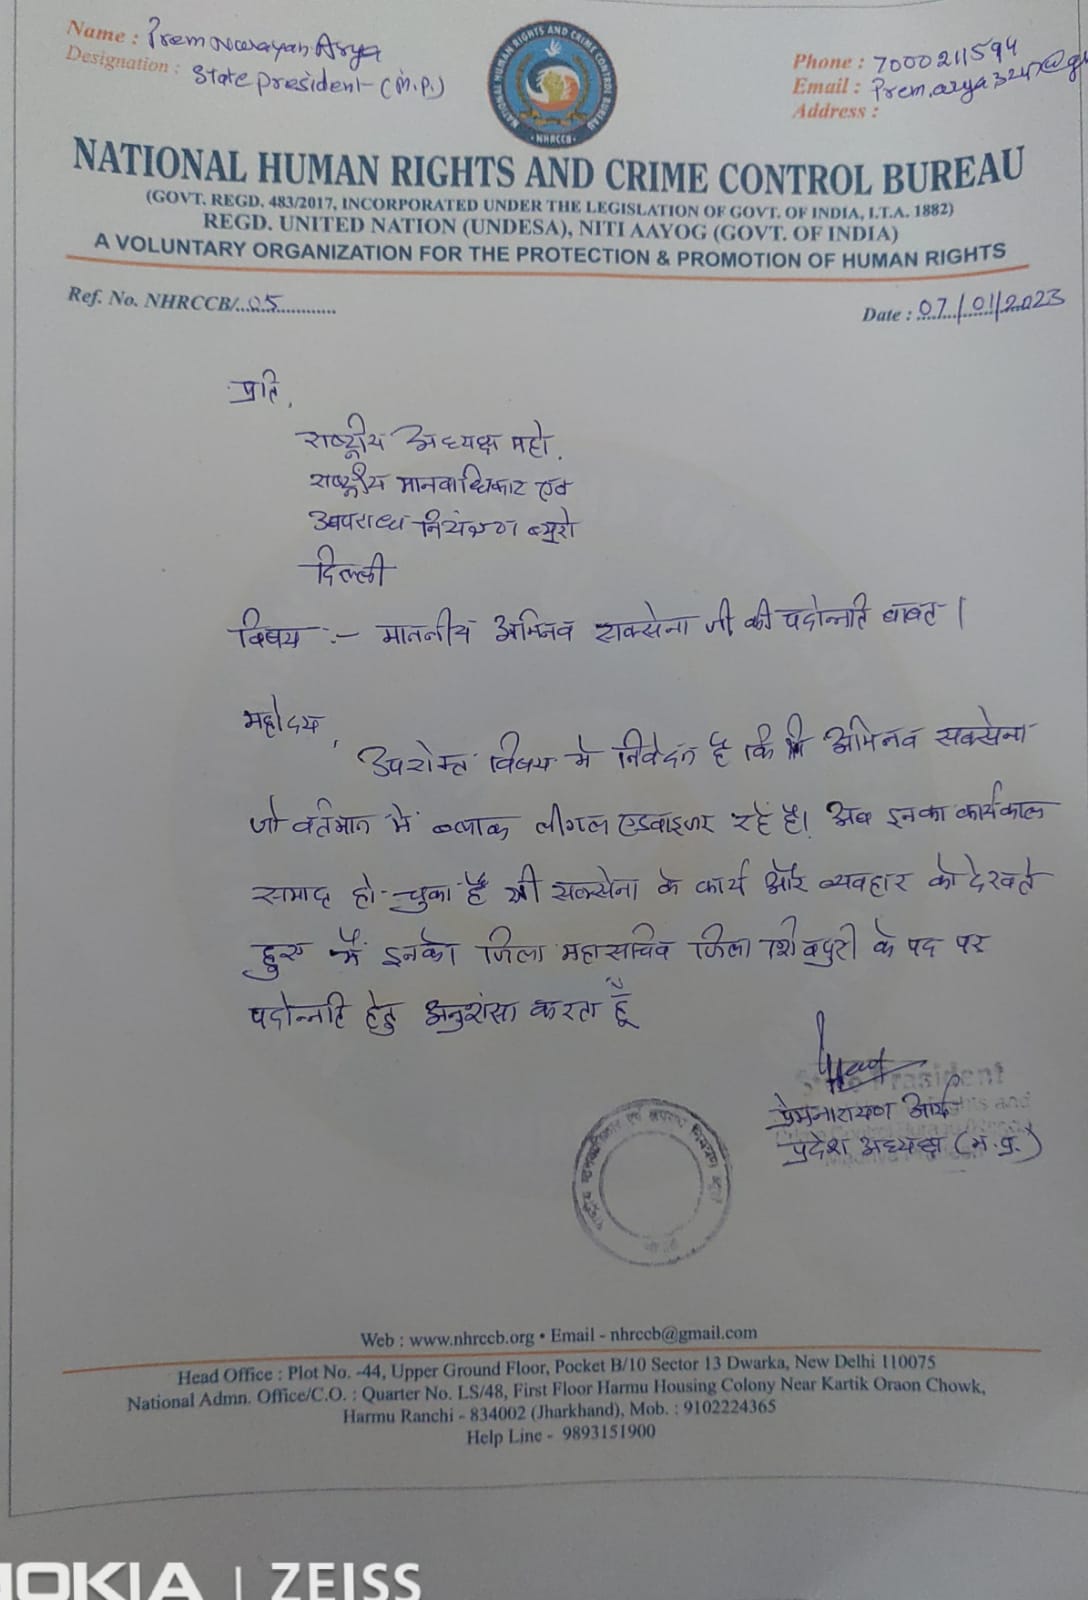 Name : Prem Narayan Arya
Designation : State president (M.P.)
NATIONAL HUMAN RIGHTS AND CRIME CONTROL BUREAU
· NHRCCB ·
Phone : 7000211594
Email :
Address :
NATIONAL HUMAN RIGHTS AND CRIME CONTROL BUREAU
(GOVT. REGD. 483/2017, INCORPORATED UNDER THE LEGISLATION OF GOVT. OF INDIA, I.T.A. 1882)
REGD. UNITED NATION (UNDESA), NITI AAYOG (GOVT. OF INDIA)
A VOLUNTARY ORGANIZATION FOR THE PROTECTION & PROMOTION OF HUMAN RIGHTS
Ref. No. NHRCCB/...05...............
Date : 07/01/2023
प्रति,
राष्ट्रीय अध्यक्ष महो.
राष्ट्रीय मानवाधिकार एवं
अपराध नियंत्रण ब्युरो
दिल्ली
विषय :- माननीय अभिनव सक्सेना जी की पदोन्नति बाबत।
महोदय,
उपरोक्त विषय में निवेदन है कि श्री अभिनव सक्सेना
जो वर्तमान में ब्लाक लीगल एडवाइजर रहे है। अब इनका कार्यकाल
समाप्त हो चुका है श्री सक्सेना के कार्य और व्यवहार को देखते
हुए मैं इनको जिला महासचिव जिला शिवपुरी के पद पर
पदोन्नति हेतु अनुशंसा करता हूँ
State President
प्रेमनारायण आर्य
प्रदेश अध्यक्ष (म.प्र.)
Web : www.nhrccb.org • Email - nhrccb@gmail.com
Head Office : Plot No. -44, Upper Ground Floor, Pocket B/10 Sector 13 Dwarka, New Delhi 110075
National Admn. Office/C.O. : Quarter No. LS/48, First Floor Harmu Housing Colony Near Kartik Oraon Chowk,
Harmu Ranchi - 834002 (Jharkhand), Mob. : 9102224365
Help Line - 9893151900
NOKIA | ZEISS